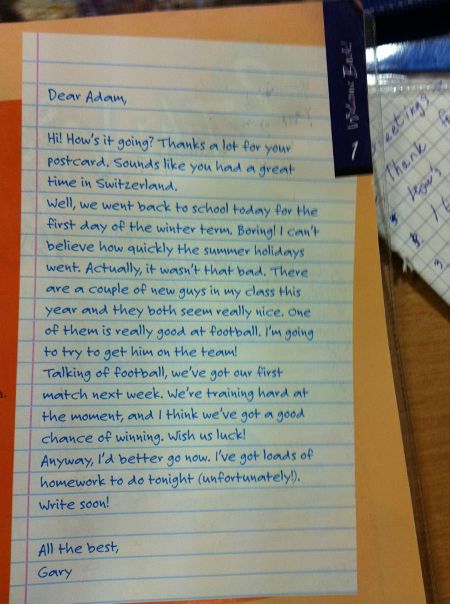 Dear Adam,
Hi! How's it going? Thanks a lot for your
postcard. Sounds like you had a great
time in Switzerland.
Well, we went back to school today for the
first day of the winter term. Boring! I can't
believe how quickly the summer holidays
went. Actually, it wasn't that bad. There
are a couple of new guys in my class this
year and they both seem really nice. One
of them is really good at football. I'm going
to try to get him on the team!
Talking of football, we've got our first
match next week. We're training hard at
the moment, and I think we've got a good
chance of winning. Wish us luck!
Anyway, I'd better go now. I've got loads of
homework to do tonight (unfortunately!).
Write soon!
All the best,
Gary
1 Welcome Back!
Thank